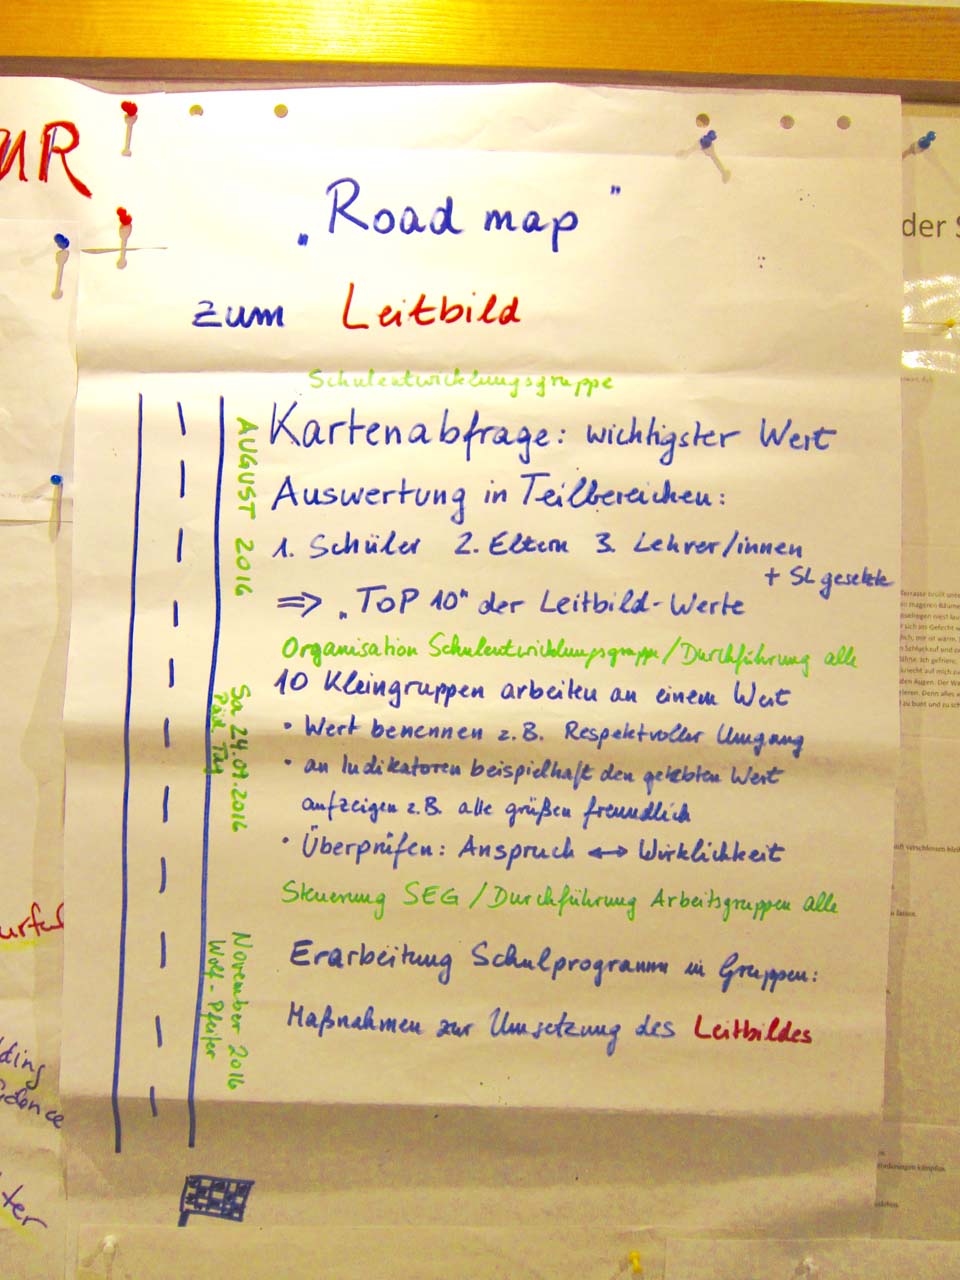 „Road map"
zum Leitbild
Schulentwicklungsgruppe
AUGUST 2016
Kartenabfrage: wichtigster Wert
Auswertung in Teilbereichen:
1. Schüler 2. Eltern 3. Lehrer/innen
+ SL gesetzte
⇒ „TOP 10" der Leitbild-Werte
Organisation Schulentwicklungsgruppe/Durchführung alle
Sa. 24.09.2016
Päd. Tag
10 Kleingruppen arbeiten an einem Wert
• Wert benennen z.B. Respektvoller Umgang
• an Indikatoren beispielhaft den gelebten Wert
aufzeigen z.B. alle grüßen freundlich
• Überprüfen: Anspruch ↔ Wirklichkeit
Steuerung SEG/Durchführung Arbeitsgruppen alle
November 2016
Erarbeitung Schulprogramm in Gruppen:
Maßnahmen zur Umsetzung des Leitbildes
der